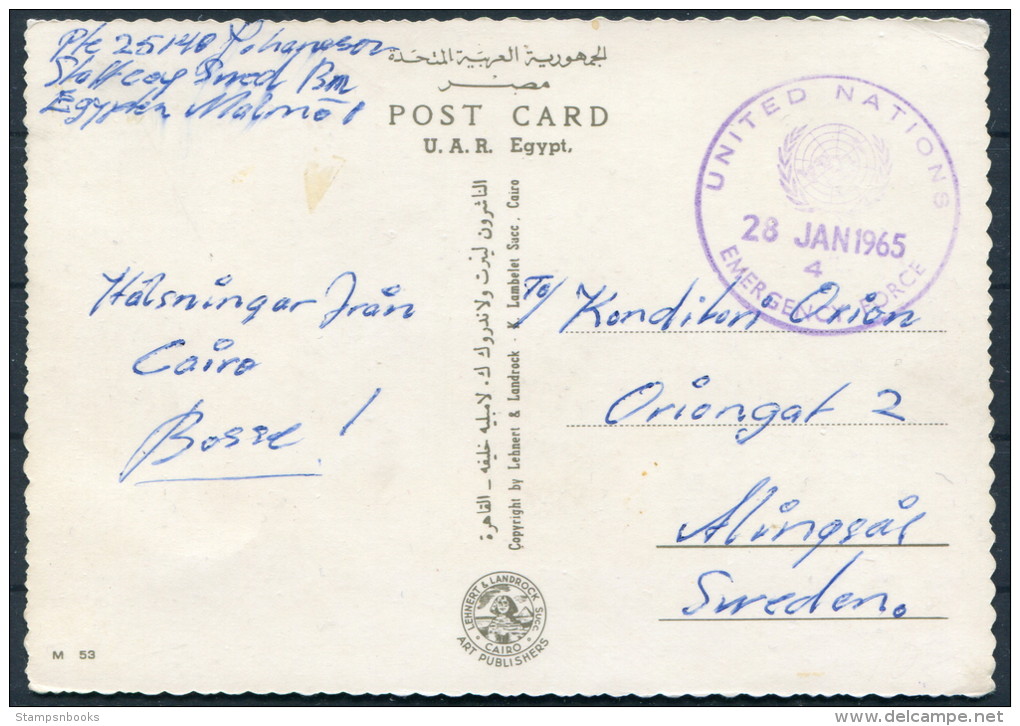 Pte 25140 Johansson
Staff coy Swed Bn
Egypten Malmö 1
الجمهورية العربية المتحدة
مصر
POST CARD
U. A. R. Egypt,
UNITED NATIONS
28 JAN 1965
4
EMERGENCY FORCE
Hälsningar från
Cairo
Bosse !
الناشرون لينرت ولاندروك ك. لامبليه خليفه - القاهرة
Copyright by Lehnert & Landrock - K. Lambelet Succ. Cairo
To/ Konditori Orion
Oriongat 2
Alingsås
Sweden.
LEHNERT & LANDROCK SUCC
CAIRO
ART PUBLISHERS
M 53
Stampsnbooks
www.delcampe.net